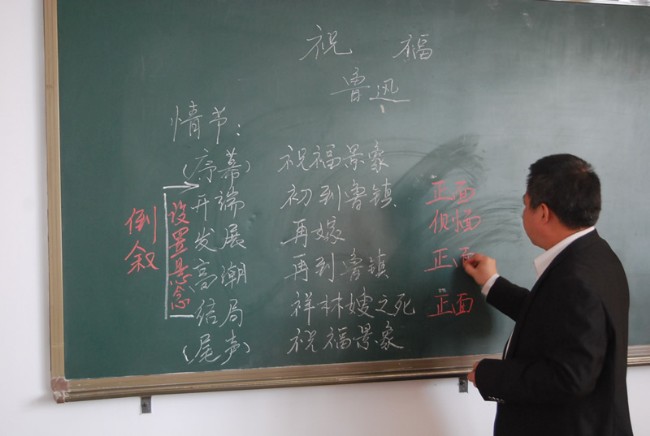 祝 福
鲁迅
情节：
(序幕) 祝福景象
开端 初到鲁镇 正面
发展 再嫁 侧面
高潮 再到鲁镇 正面
结局 祥林嫂之死 正面
(尾声) 祝福景象
倒叙
设置悬念